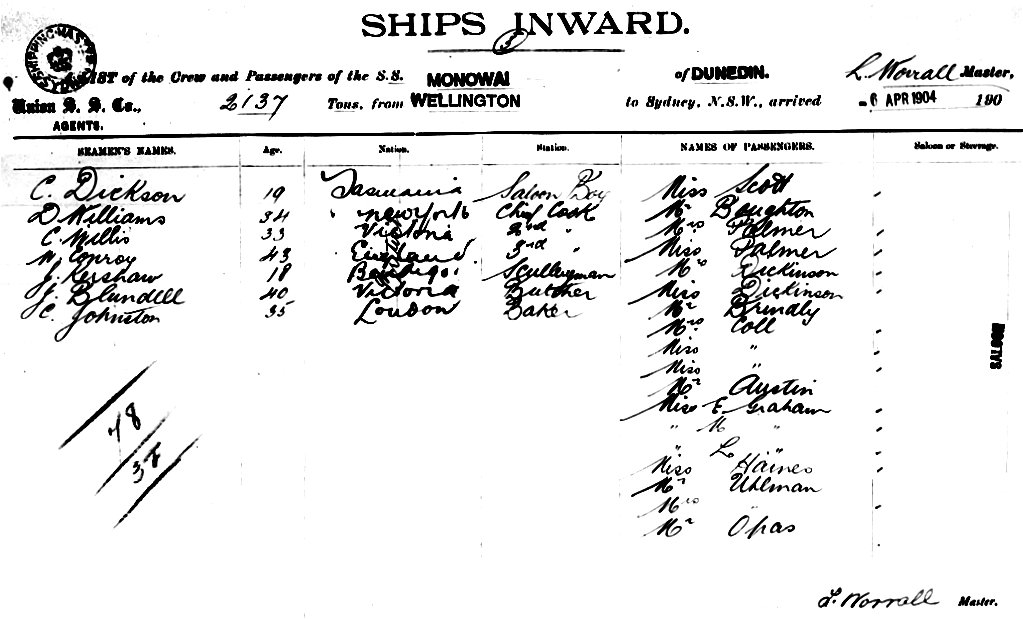 SHIPS INWARD.
3
SHIPPING MASTER
LIST of the Crew and Passengers of the S.S. MONOWAI of DUNEDIN. L. Worrall Master,
Union S. S. Co., 2137 Tons, from WELLINGTON to Sydney, N.S.W., arrived - 6 APR 1904 190
AGENTS.
SEAMEN'S NAMES. Age. Nation. Station. NAMES OF PASSENGERS. Saloon or Steerage.
C. Dickson 19 Tasmania Saloon Boy Miss Scott
D Williams 34 New York Chief Cook Mr Boughton
C. Willis 33 Victoria 2nd " Mrs Palmer
W. Conroy 43 England 3rd " Miss Palmer
J. Kershaw 18 Bendigo Sculleryman Mrs Dickinson
J. Blundell 40 Victoria Butcher Miss Dickinson
C. Johnston 35 London Baker Mr Brindly
Mrs Coll
Miss "
Miss "
SALOON
Mr Austin
Miss E. Graham
" M "
" L "
Miss Haines
Mr Uhlman
Mrs "
Mr Opas
78
38
L. Worrall Master.